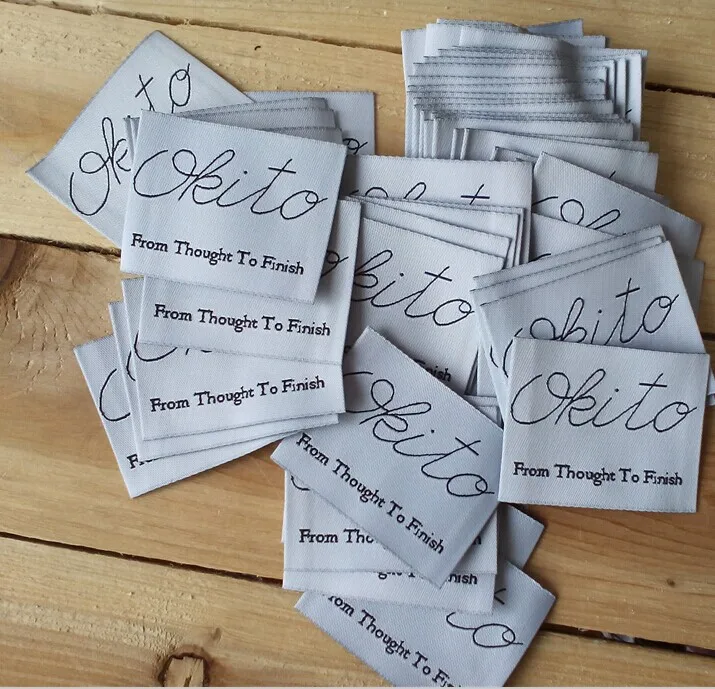 Okito
Okito
From Thought To Finish
From Thought To Finish
From Thought To Finish
Okito
Okito
Okito
From Thought To Finish
Okito
From Thought To Finish
From
Thought To